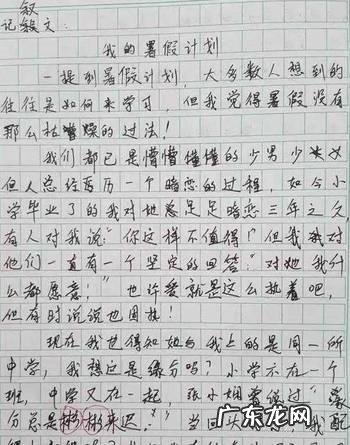 叙
记叙文:
我的暑假计划
一提到暑假计划,大多数人想到的
往往是如何来学习,但我觉得暑假没有
那么枯燥的过法!
我们都已是懵懵懂懂的少男少女
但人总经历一个暗恋的过程,如今小
学毕业了的我对她足足暗恋三年之久,
有人对我说:"你这样不值得!"但我对
他们一直有一个坚定的回答:"对她我什
么都愿意!"也许爱就是这么执着吧,
但有时说说也困扰!
现在我也得知她与我上的是同一所
中学,我想这是缘分吗?小学不在一个
班,中学又在一起,张小娴曾经过"缘
分总是姗姗来迟。"当回头
我配
广东龙网
GDLWCN.COM